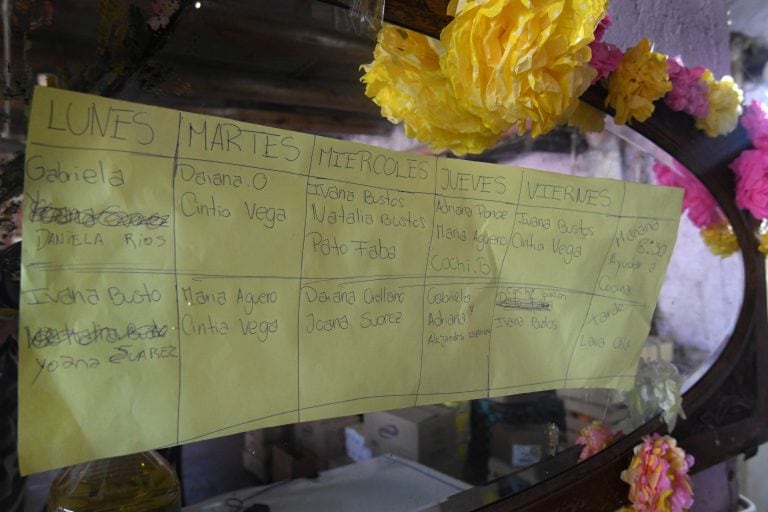 LUNES MARTES MIERCOLES JUEVES VIERNES
Gabriela
DANIELA RIOS
Daiana.O
Cintia Vega
Ivana Bustos
Natalia Bustos
Pato Faba
Adriana Ponce
Maria Aguero
Cochi.B
Ivana Bustos
Cintia Vega
Mañana
8:30
Ayudar a
Cocina
Ivana Busto
Yoana SUAREZ
Maria Aguero
Cintia Vega
Daiana Orellano
Joana Suarez
Gabriela y
Adriana
Alejandra
Cochi
Ivana Bustos
Lava